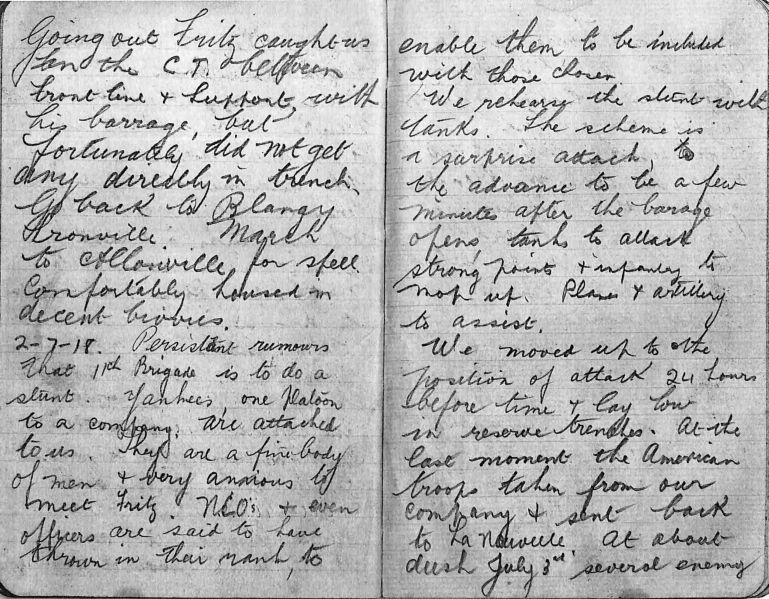 Going out Fritz caught us
in the C.T. between
front line & support, with
his barrage, but
fortunately did not get
any directly in trench.
Go back to Blangy
Tronville. March
to Allonville for spell
Comfortably housed in
decent bivvies.
2-7-18. Persistent rumours
that 11th Brigade is to do a
stunt. Yankees, one platoon
to a company, are attached
to us. They are a fine body
of men & very anxious to
meet Fritz. NCO's & even
officers are said to have
thrown in their rank, to
enable them to be included
with those chosen
We rehearse the stunt with
tanks. The scheme is
a surprise attack, to
the advance to be a few
minutes after the barage
opens, tanks to attack
strong point & infantry to
mop up. Planes & artillery
to assist.
We moved up to the
position of attack 24 hours
before time & lay low
in reserve trenches. At the
last moment the American
troops taken from our
company & sent back
to La Neuville. At about
dusk July 3rd several enemy